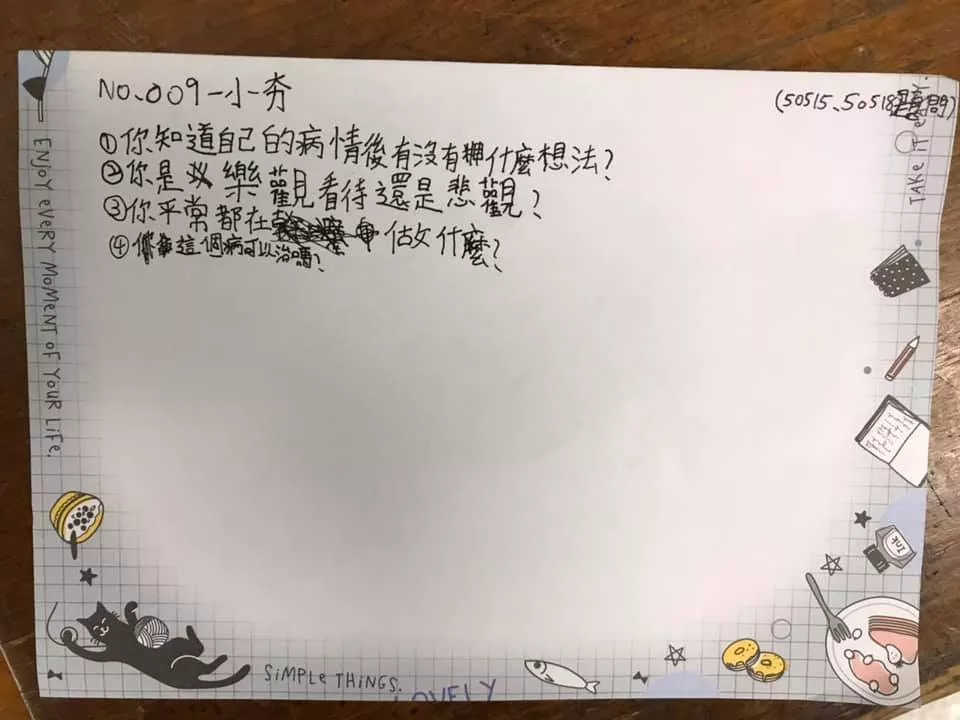 NO.009-小夯
(50515、50518提問)
①你知道自己的病情後有沒有什麼想法?
②你是樂觀看待還是悲觀?
③你平常都在做什麼?
④這個病可以治嗎?
ENJOY EVERY MOMENT OF YOUR LIFE.
TAKE IT
Ink
SIMPLE THINGS.
LOVELY